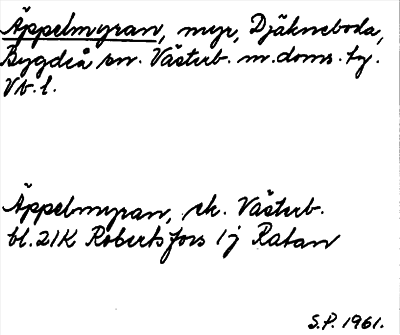 Äppelmyran, myr, Djäkneboda,
Bygdeå sn. Västerb. m. doms. tg.
Vb. l.
Äppelmyran, ek. Västerb.
bl. 21K Robertsfors 1j Ratan
S.P. 1961.